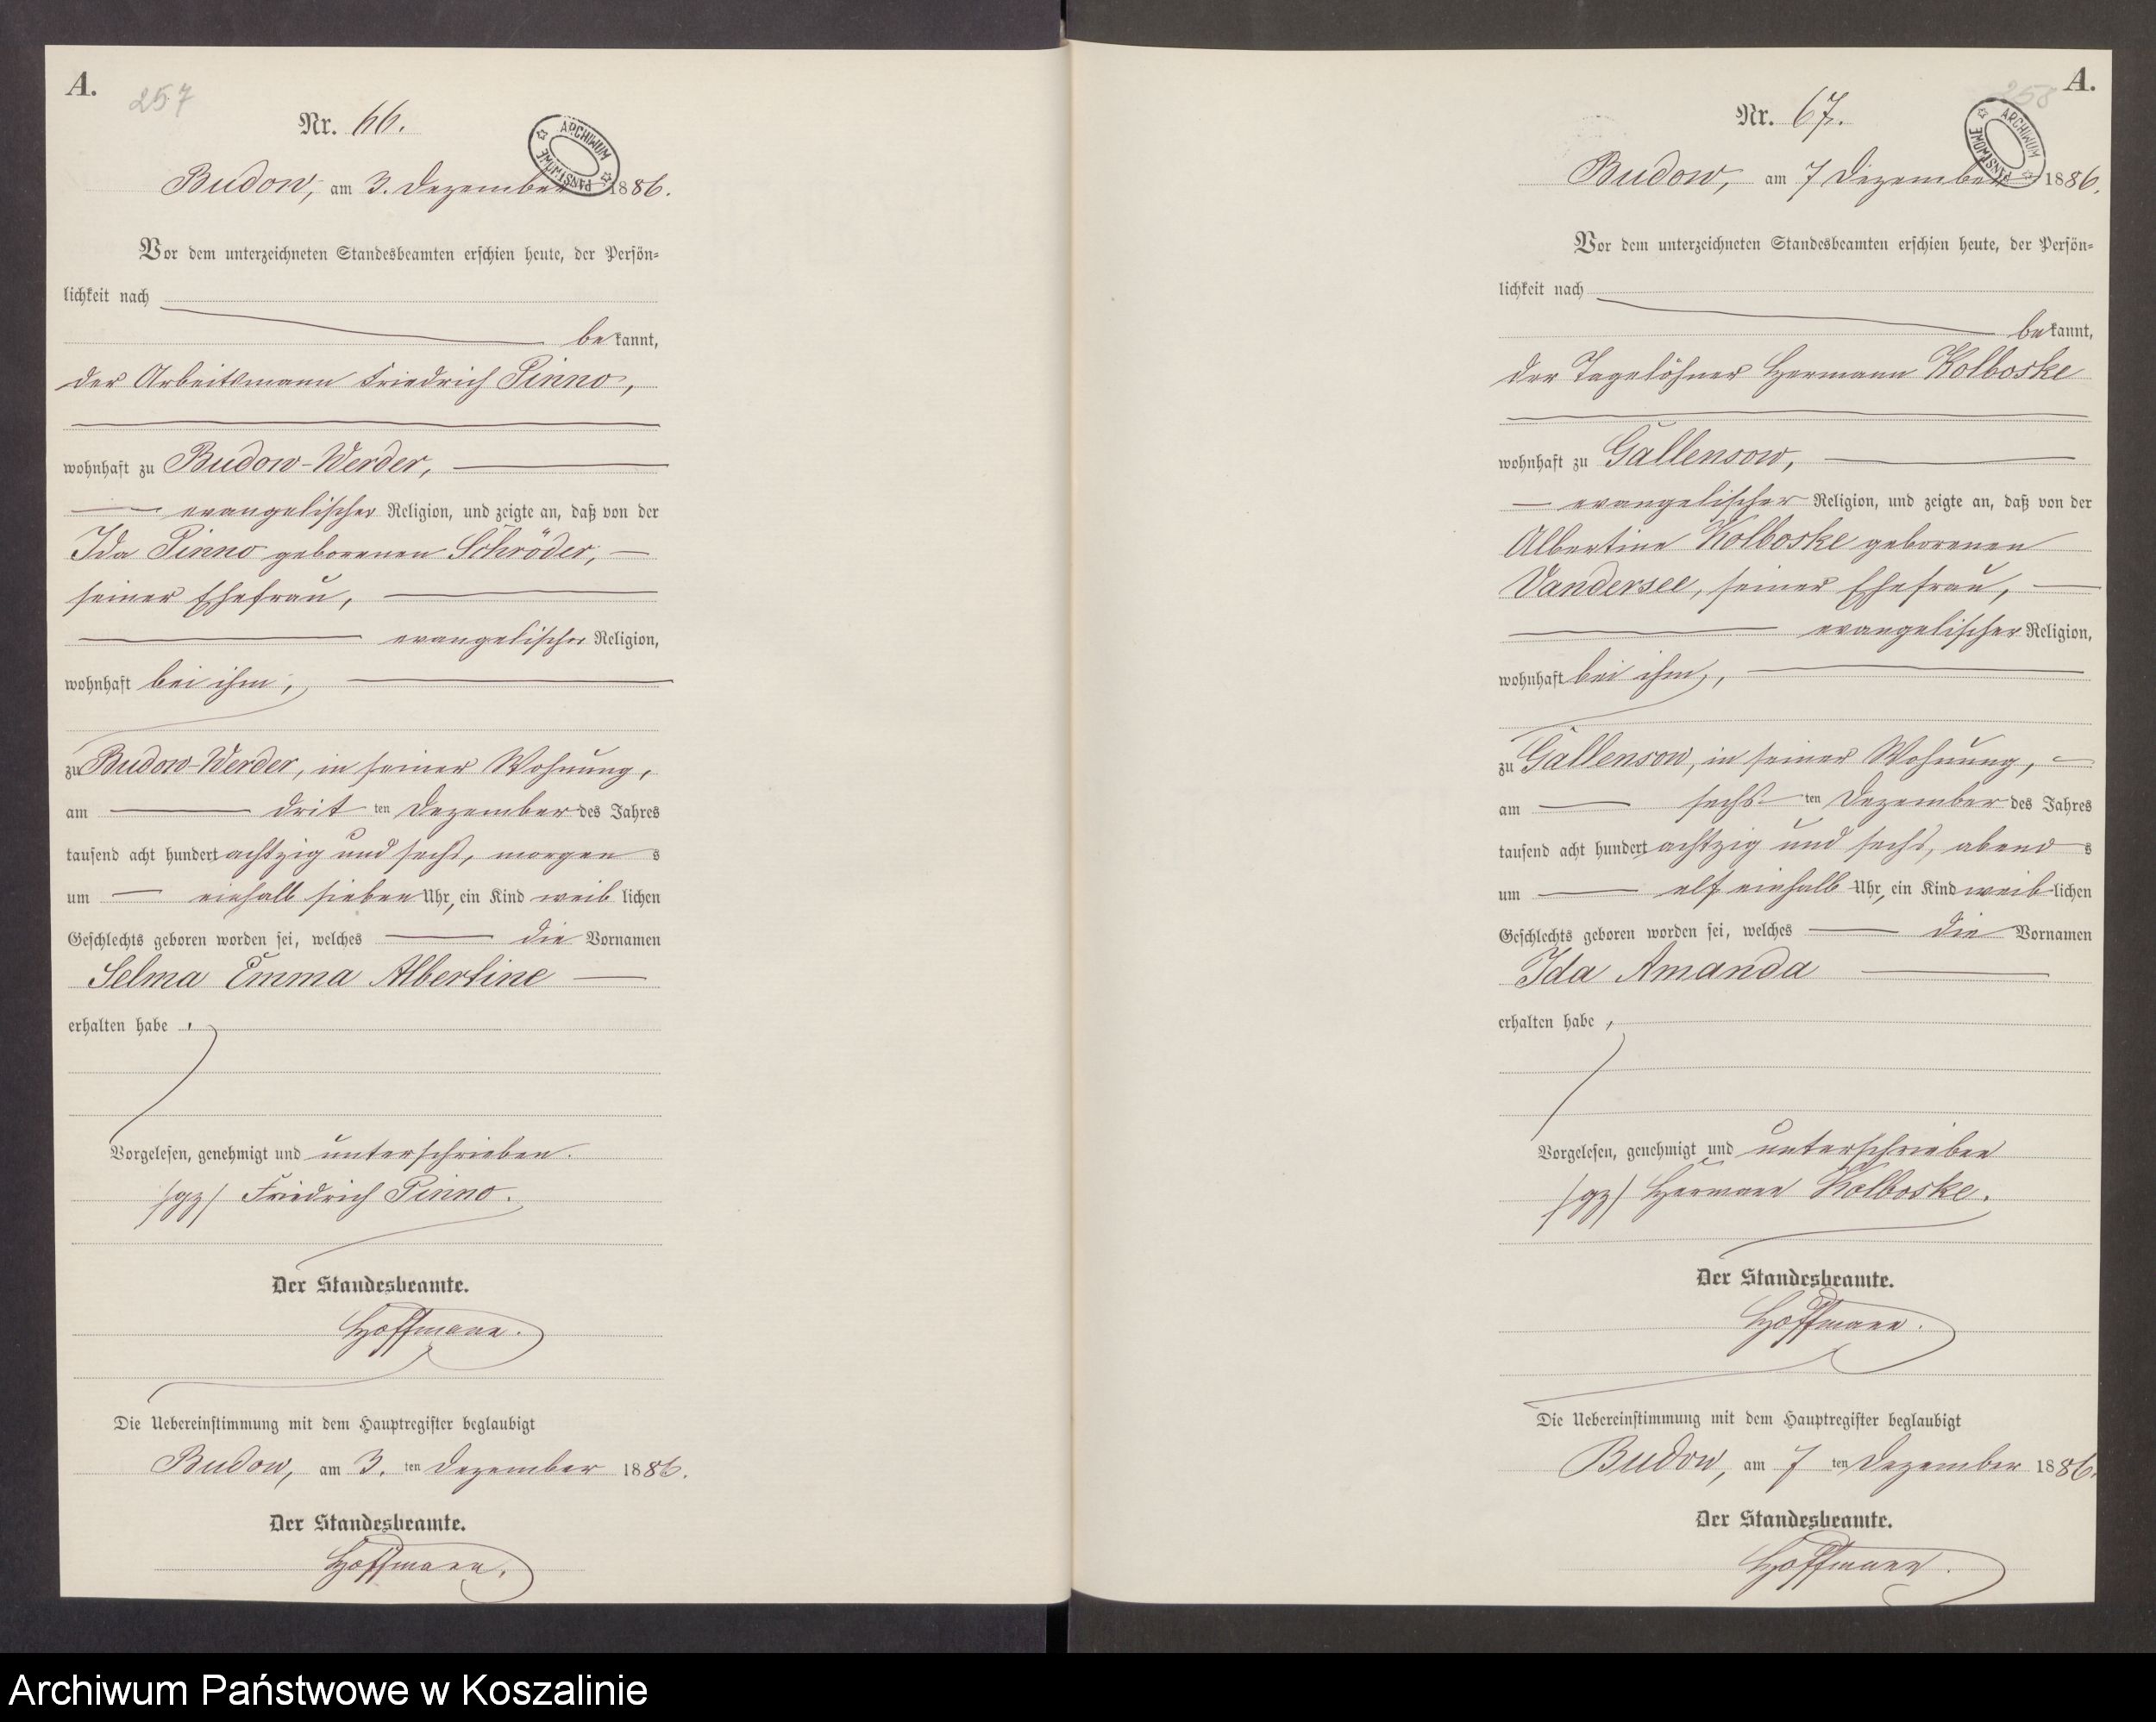 A.
257
Nr. 66.
ARCHIWUM PAŃSTWOWE
Budow, am 3. Dezember 1886.
Vor dem unterzeichneten Standesbeamten erschien heute, der Persön=
lichkeit nach
bekannt,
der Arbeitsmann Friedrich Pinno,
wohnhaft zu Budow-Werder,
evangelischer Religion, und zeigte an, daß von der
Ida Pinno geborenen Schröder,
seiner Ehefrau,
evangelischer Religion,
wohnhaft bei ihm,
zu Budow-Werder, in seiner Wohnung,
am drit ten Dezember des Jahres
tausend acht hundert achtzig und sechs, morgens
um einhalb sieben Uhr, ein Kind weiblichen
Geschlechts geboren worden sei, welches die Vornamen
Selma Emma Albertine
erhalten habe.
Vorgelesen, genehmigt und unterschrieben.
/gz/ Friedrich Pinno.
Der Standesbeamte.
Hoffmann.
Die Uebereinstimmung mit dem Hauptregister beglaubigt
Budow, am 3. ten Dezember 1886.
Der Standesbeamte.
Hoffmann.
258
A.
Nr. 67.
ARCHIWUM PAŃSTWOWE
Budow, am 7 Dezember 1886.
Vor dem unterzeichneten Standesbeamten erschien heute, der Persön=
lichkeit nach
bekannt,
der Tagelöhner Hermann Kolboske
wohnhaft zu Gallensow,
evangelischer Religion, und zeigte an, daß von der
Albertine Kolboske geborenen
Vandersee, seiner Ehefrau,
evangelischer Religion,
wohnhaft bei ihm,
zu Gallensow, in seiner Wohnung,
am sechs ten Dezember des Jahres
tausend acht hundert achtzig und sechs, abends
um elf einhalb Uhr, ein Kind weiblichen
Geschlechts geboren worden sei, welches die Vornamen
Ida Amanda
erhalten habe,
Vorgelesen, genehmigt und unterschrieben
/gz/ Hermann Kolboske.
Der Standesbeamte.
Hoffmann.
Die Uebereinstimmung mit dem Hauptregister beglaubigt
Budow, am 7 ten Dezember 1886.
Der Standesbeamte.
Hoffmann.
Archiwum Państwowe w Koszalinie